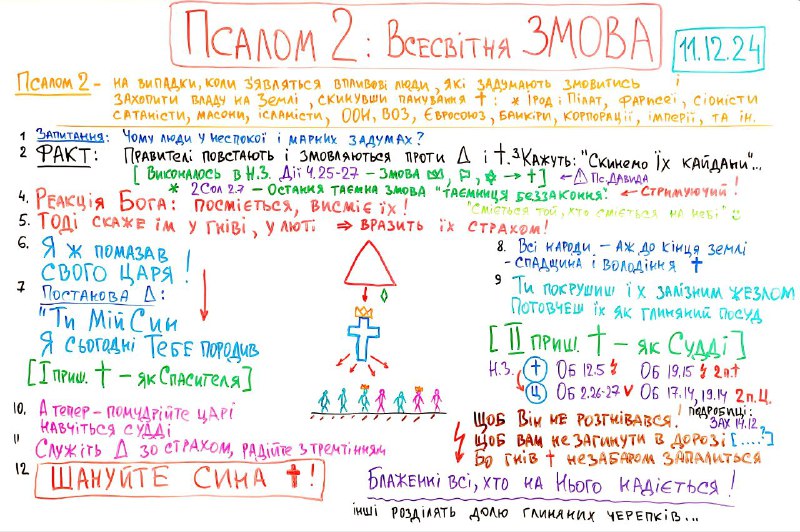 Псалом 2: Всесвітня ЗМОВА
11.12.24
Псалом 2 - на випадки, коли з'являться впливові люди, які задумають змовитись і
захопити владу на Землі, скинувши панування ✝: * Ірод і Пілат, фарисеї, сіоністи
сатаністи, масони, ісламісти, ООН, ВОЗ, Євросоюз, банкіри, корпорації, імперії, та ін.
1 Запитання: Чому люди у неспокої і марних задумах?
2 ФАКТ: Правителі повстають і змовляються проти Δ і ✝. 3 Кажуть: "Скинемо їх кайдани"...
[Виконалось в Н.З. Дії 4.25-27 - Змова → ✝] ← Пс. Давида
* 2 Сол 2.7 - Остання таємна змова "таємниця беззаконня" ← Стримуючий!
4. Реакція Бога: посміється, висміє їх! "Сміється той, хто сміється на небі"
5. Тоді скаже їм у гніві, у люті ⇒ вразить їх страхом!
6. Я ж помазав
свого царя!
7 Постанова Δ:
"Ти Мій Син
Я сьогодні Тебе породив
[I приш. ✝ - як Спасителя]
8. Всі народи - аж до кінця землі
- спадщина і володіння ✝
9 Ти покрушиш їх залізним жезлом
потовчеш їх як глиняний посуд
[II приш. ✝ - як Судді]
Н.З. ✝ Об 12.5 Об 19.15 2 п. ✝
Ц Об 2.26-27 Об 17.14, 19.14 2 п. Ц.
10. А тепер - помудрійте царі
навчіться судді
11 Служіть Δ зо страхом, радійте з тремтінням
12 ШАНУЙТЕ СИНА ✝!
Щоб Він не розгнівався! подробиці: Зах 14.12
Щоб вам не загинути в дорозі [.....?]
Бо гнів ✝ незабаром запалиться
Блаженні всі, хто на Нього надіється!
інші розділять долю глиняних черепків...